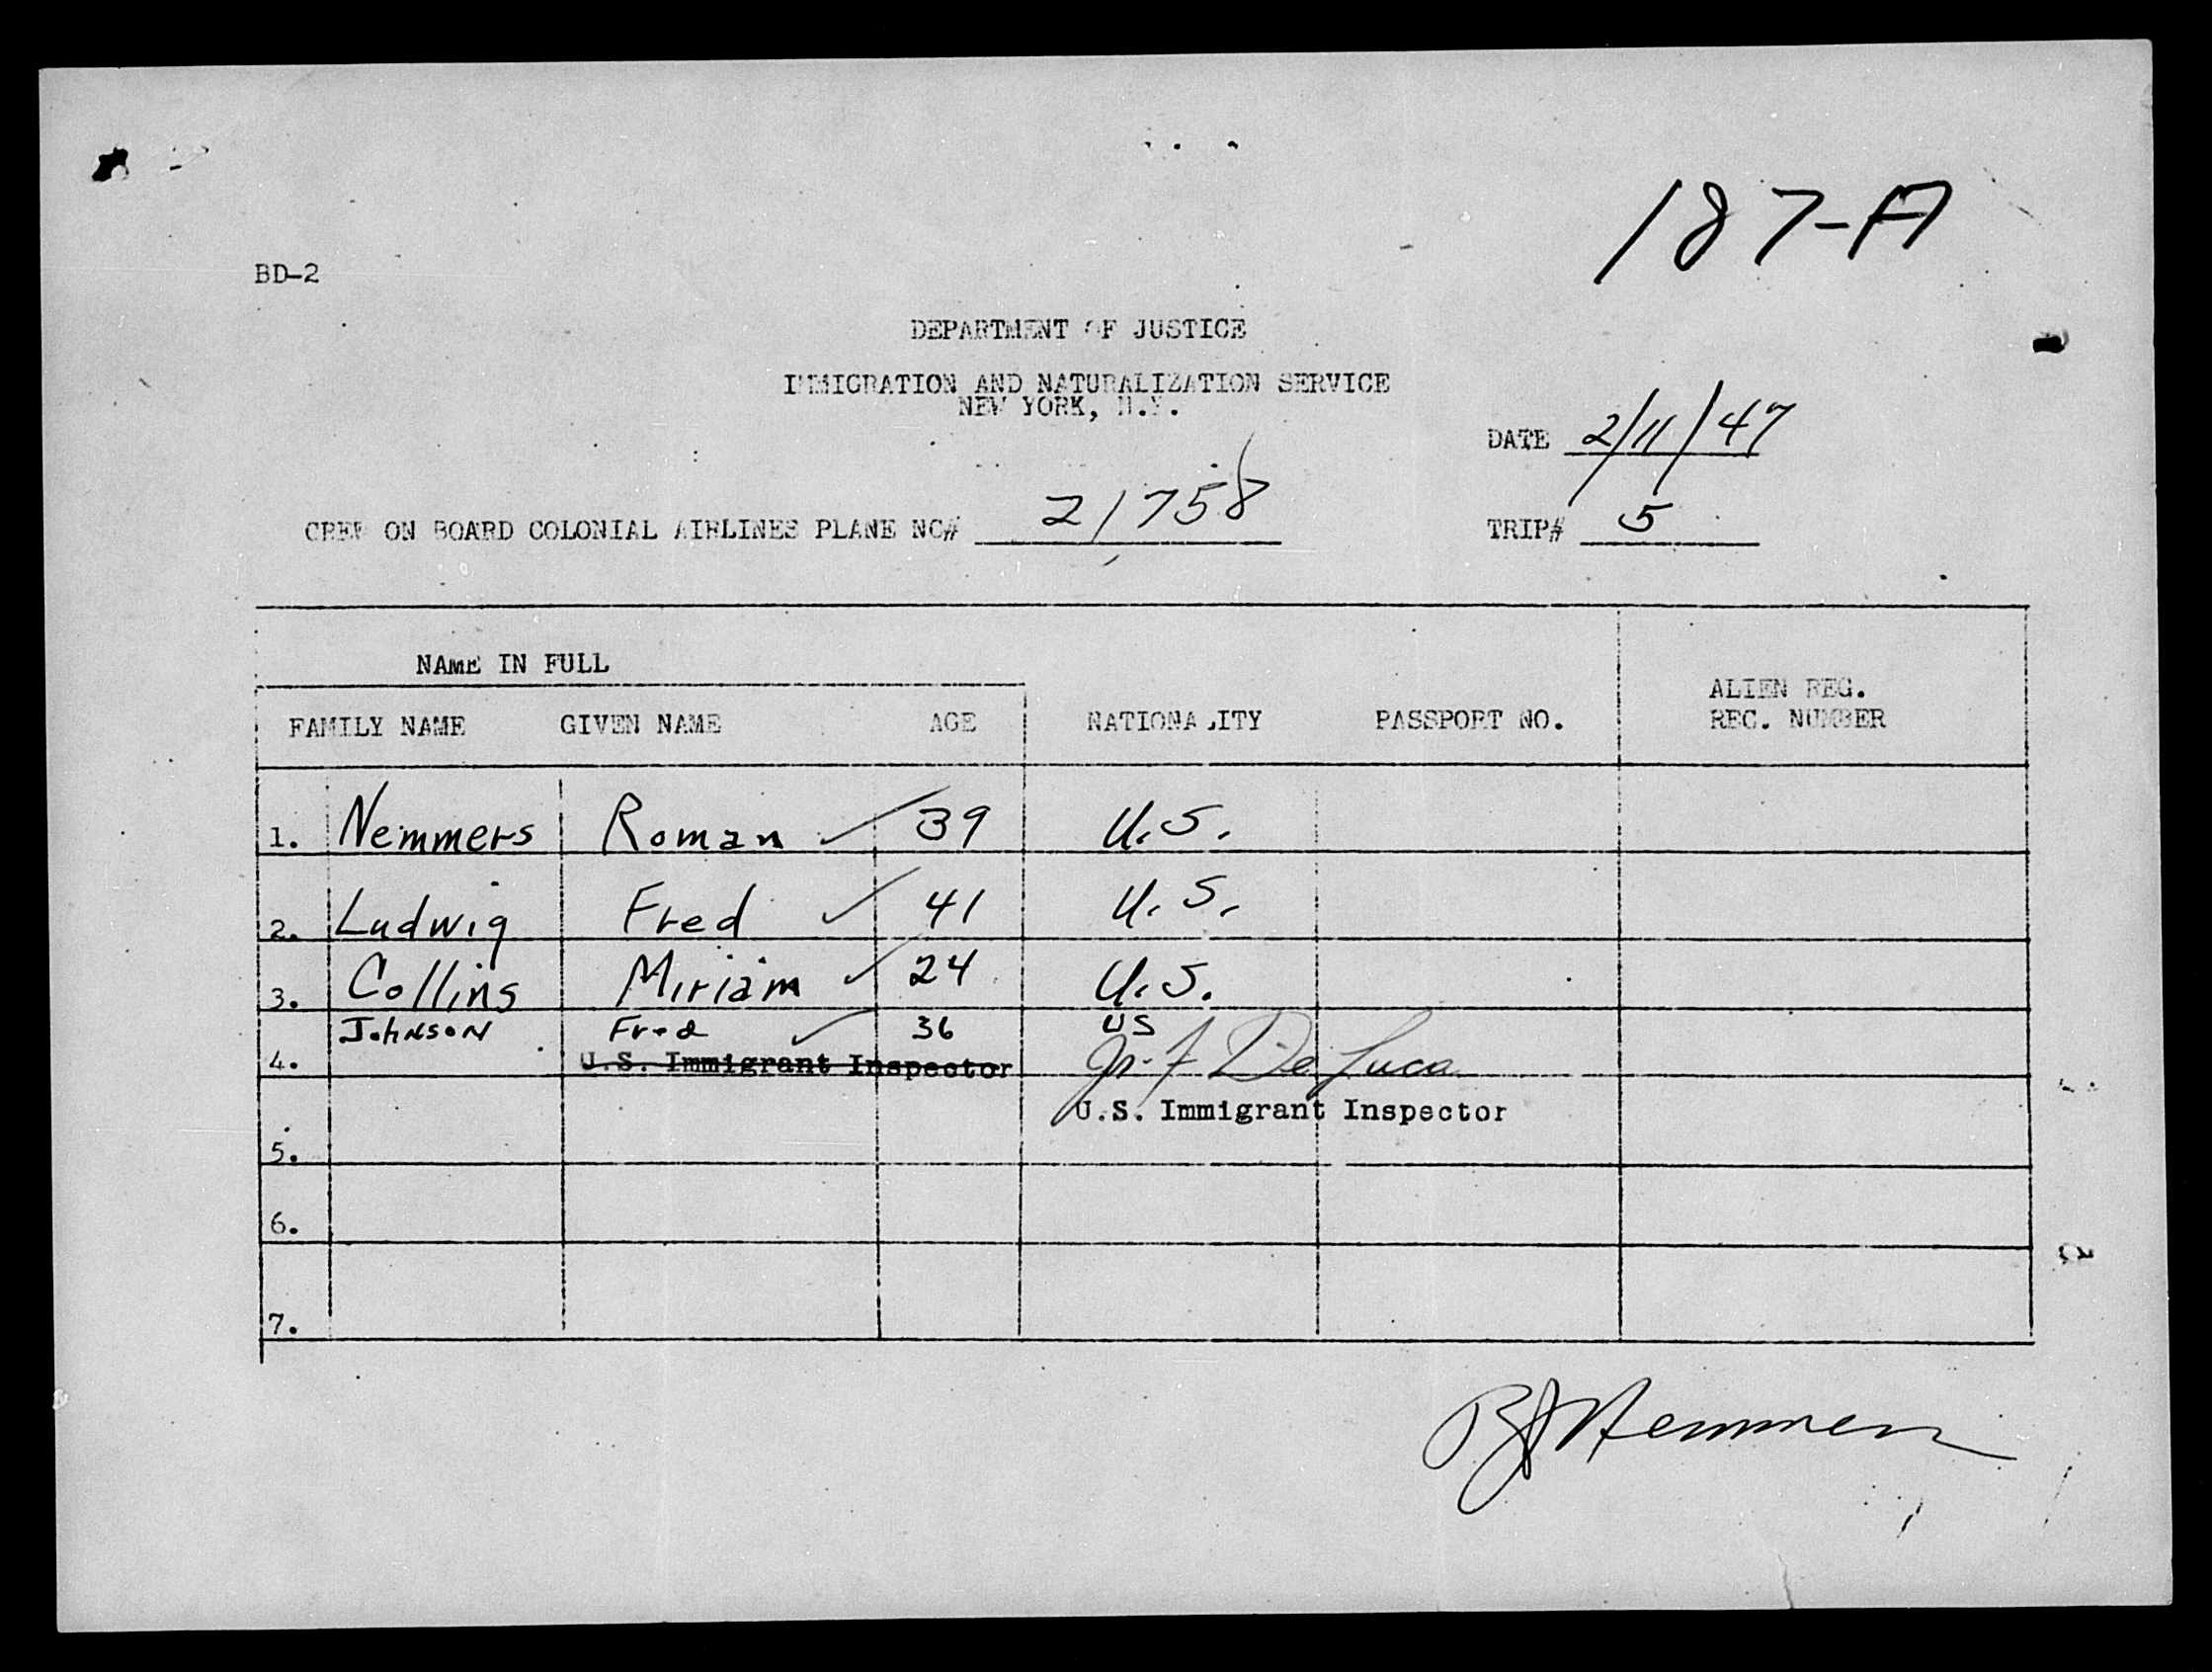 187-A
BD-2
DEPARTMENT OF JUSTICE
IMMIGRATION AND NATURALIZATION SERVICE
NEW YORK, N.Y.
DATE 2/11/47
CREW ON BOARD COLONIAL AIRLINES PLANE NC# 21758 TRIP# 5
NAME IN FULL
ALIEN REG.
FAMILY NAME GIVEN NAME AGE NATIONALITY PASSPORT NO. REC. NUMBER
1. Nemmers Roman ✓ 39 U.S.
2. Ludwig Fred ✓ 41 U.S.
3. Collins Miriam ✓ 24 U.S.
Johnson Fred ✓ 36 US
4. U.S. Immigrant Inspector De Luca
U.S. Immigrant Inspector
5.
6.
7.
RJ Nemmers